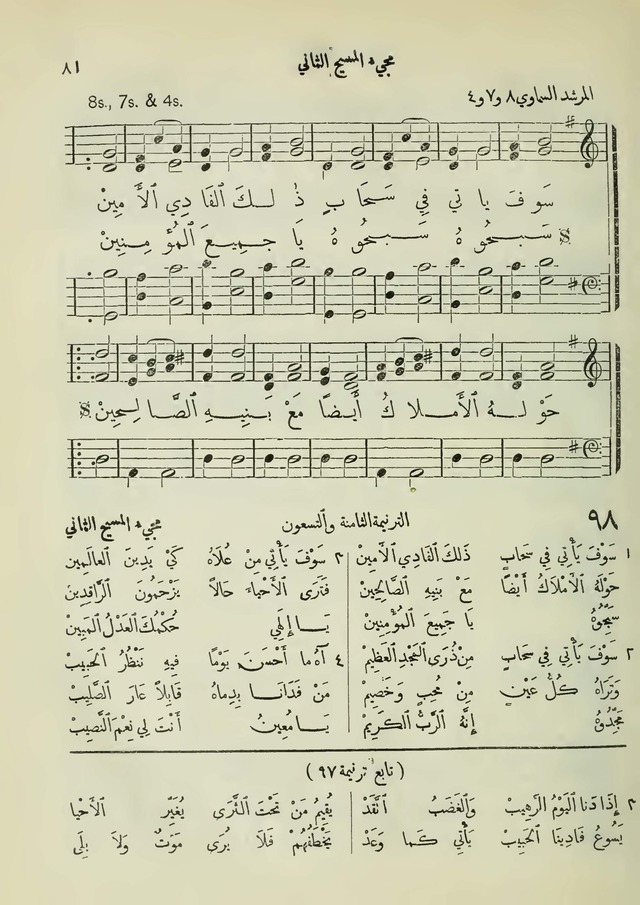 ٨١
مجيء المسيح الثاني
8s., 7s. & 4s.
المرشد السماوي ٨ و٧ و٤
سَوفَ ياتي فِي سَحَابٍ ذٰلِكَ ٱلفَادِي ٱلأَمِينْ
سَبحُوهُ سَبحُوهُ يَا جَمِيعَ ٱلمُؤمِنِينْ
حَولَهُ ٱلأَملَاكُ أَيضًا مَعْ بَنِيهِ ٱلصَّالِحِينْ
٩٨
الترنيمة الثامنة والتسعون
مجيء المسيح الثاني
١ سَوْفَ يَأْتِي فِي سَحَابٍ ذٰلِكَ ٱلْفَادِي ٱلْأَمِينْ
حَوْلَهُ ٱلْأَمْلَاكُ أَيْضًا مَعْ بَنِيهِ ٱلصَّالِحِينْ
سَبِّحُوهُ يَا جَمِيعَ ٱلْمُؤْمِنِينْ
٢ سَوْفَ يَأْتِي فِي سَحَابٍ مِنْ ذُرَى ٱلْمَجْدِ ٱلْعَظِيمْ
وَتَرَاهُ كُلُّ عَيْنٍ مِنْ مُحِبٍ وَخَصِيمْ
مَجِّدُوهُ إِنَّهُ ٱلرَّبُّ ٱلْكَرِيمْ
٣ سَوْفَ يَأْتِي مِنْ عُلَاهُ كَيْ يَدِينَ ٱلْعَالَمِينْ
فَتَرَى ٱلْأَحْيَاءَ حَالًا يَزْحَمُونَ ٱلرَّاقِدِينْ
يَا إِلٰهِي حُكْمُكَ ٱلْعَدْلُ ٱلْمُبِينْ
٤ آهُ مَا أَحْسَنَ يَوْمًا فِيهِ نَنْظُرُ ٱلْحَبِيبْ
مَنْ فَدَانَا بِدِمَاهُ قَابِلًا عَارَ ٱلصَّلِيبْ
يَا مُعِينُ أَنْتَ لِي نِعْمَ ٱلنَّصِيبْ
(تابع ترنيمة ٩٧)
٢ إِذَا دَنَا ٱلْيَوْمُ ٱلرَّهِيبْ وَٱلْغَضَبُ ٱتَّقَدْ
يُقِيمُ مَنْ تَحْتَ ٱلثَّرَى يُغَيِّرُ ٱلْأَحْيَا
يَسُوعُ فَادِينَا ٱلْحَبِيبْ يَأْتِي كَمَا وَعَدْ
يَخْطَفُهُمْ فَلَا يُرَى مَوْتٌ وَلَا بِلَى